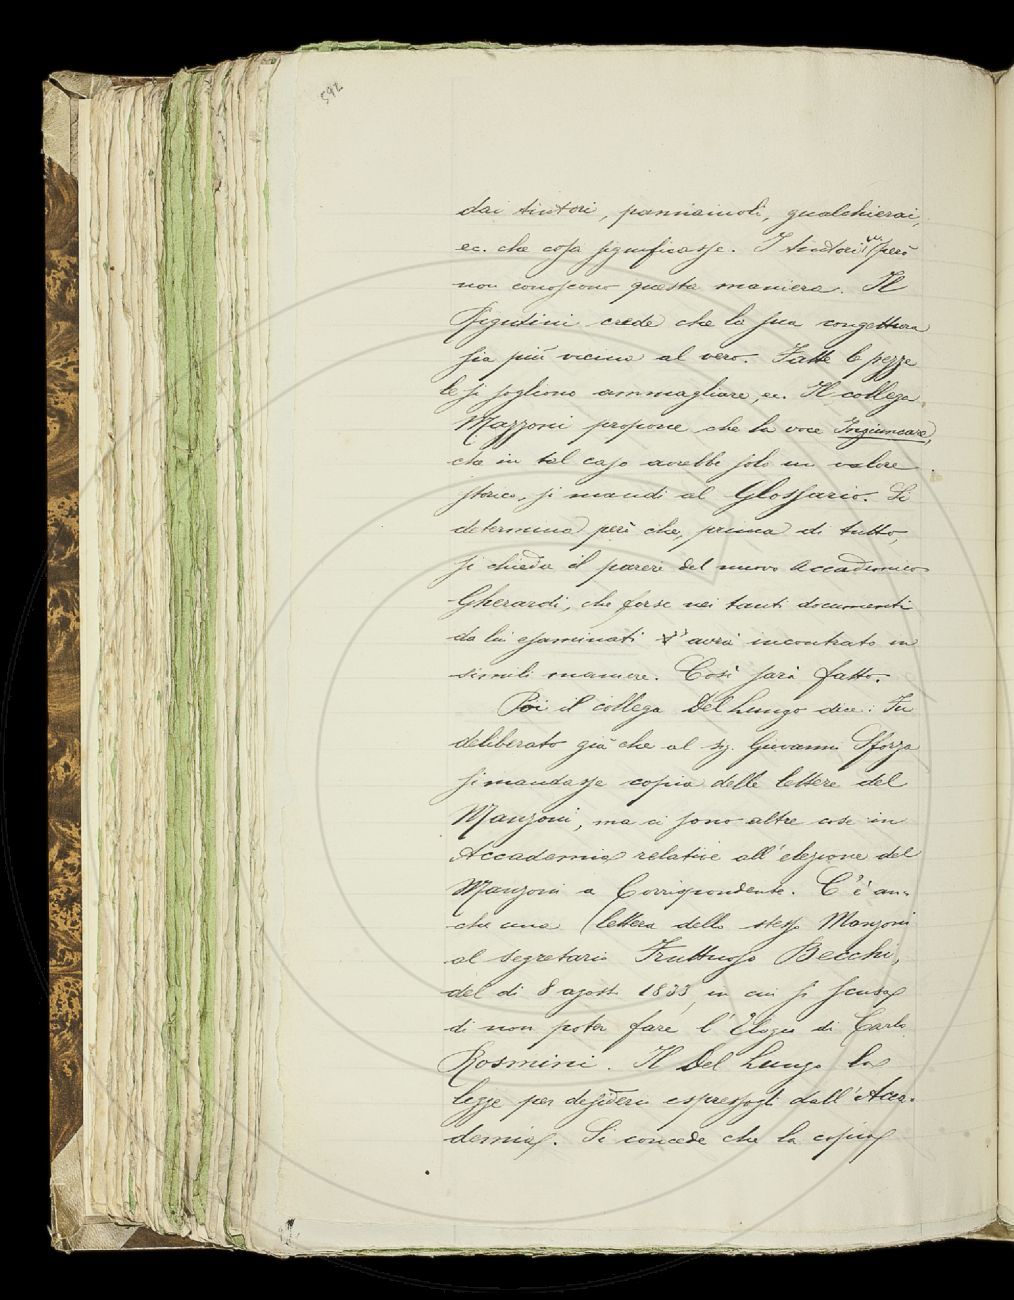 592
dai tintori, panniaiuoli, gualchierai,
ec. che cosa significasse. I tintori però
non conoscono questa maniera. Il
Rigutini crede che la sua congettura
sia più vicina al vero. Fatte le pezze
le si sogliono ammagliare, ec. Il collega
Mazzoni propone che la voce Ingiuncare,
che in tal caso avrebbe solo un valore
storico, si mandi al Glossario. Si
determina però che, prima di tutto,
si chieda il parere del nuovo Accademico
Gherardi, che forse nei tanti documenti
da lui esaminati s' avrà incontrato in
simili maniere. Così sarà fatto.
Poi il collega Del Lungo dice: Fu
deliberato già che al sig. Giovanni Sforza
si mandasse copia delle lettere del
Manzoni, ma ci sono altre cose in
Accademia relative all'elezione del
Manzoni a Corrispondente. C'è an-
che una lettera dello stesso Manzoni
al segretario Fruttuoso Becchi,
del dì 8 agosto 1833, in cui si scusa
di non poter fare l'Elogio di Carlo
Rosmini. Il Del Lungo la
legge per desiderio espressogli dall'Acca-
demia. Si concede che la copia